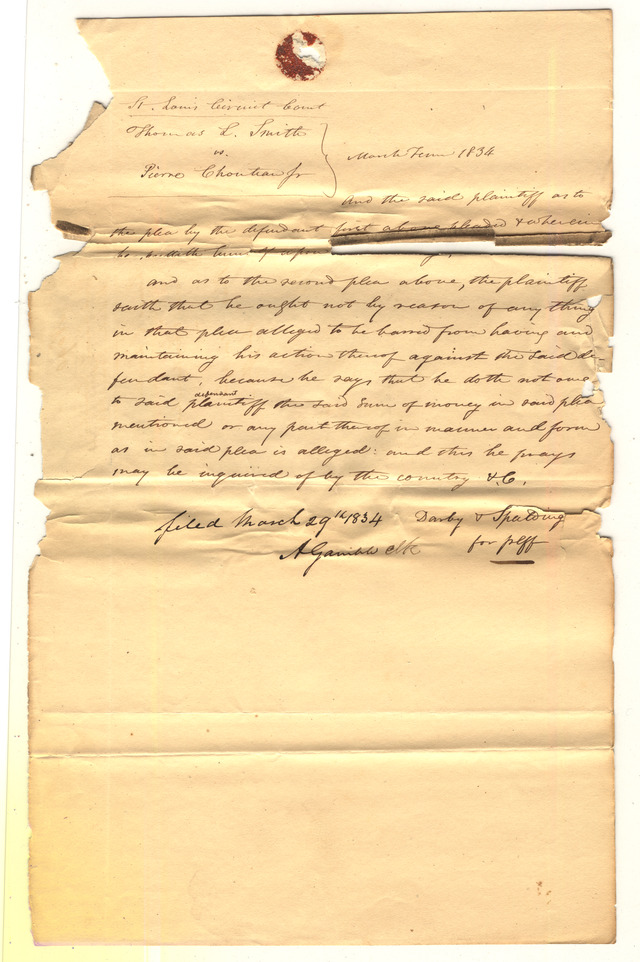 St. Louis Circuit Court
Thomas L. Smith
vs.
Pierre Chouteau Jr
March Term 1834
And the said plaintiff as to
the plea by the defendant first above pleaded & wherein
he
and as to the second plea above, the plaintiff
saith that he ought not by reason of any thing
in that plea alleged to be barred from having and
maintaining his action thereof against the said de-
fendant, because he says that he doth not owe
defendant
to said plaintiff the said sum of money in said plea
mentioned or any part thereof in manner and form
as in said plea is alleged: and this he prays
may be inquired of by the country &C.
filed March 29th 1834 Darby & Spalding
A Gamble clk for plff